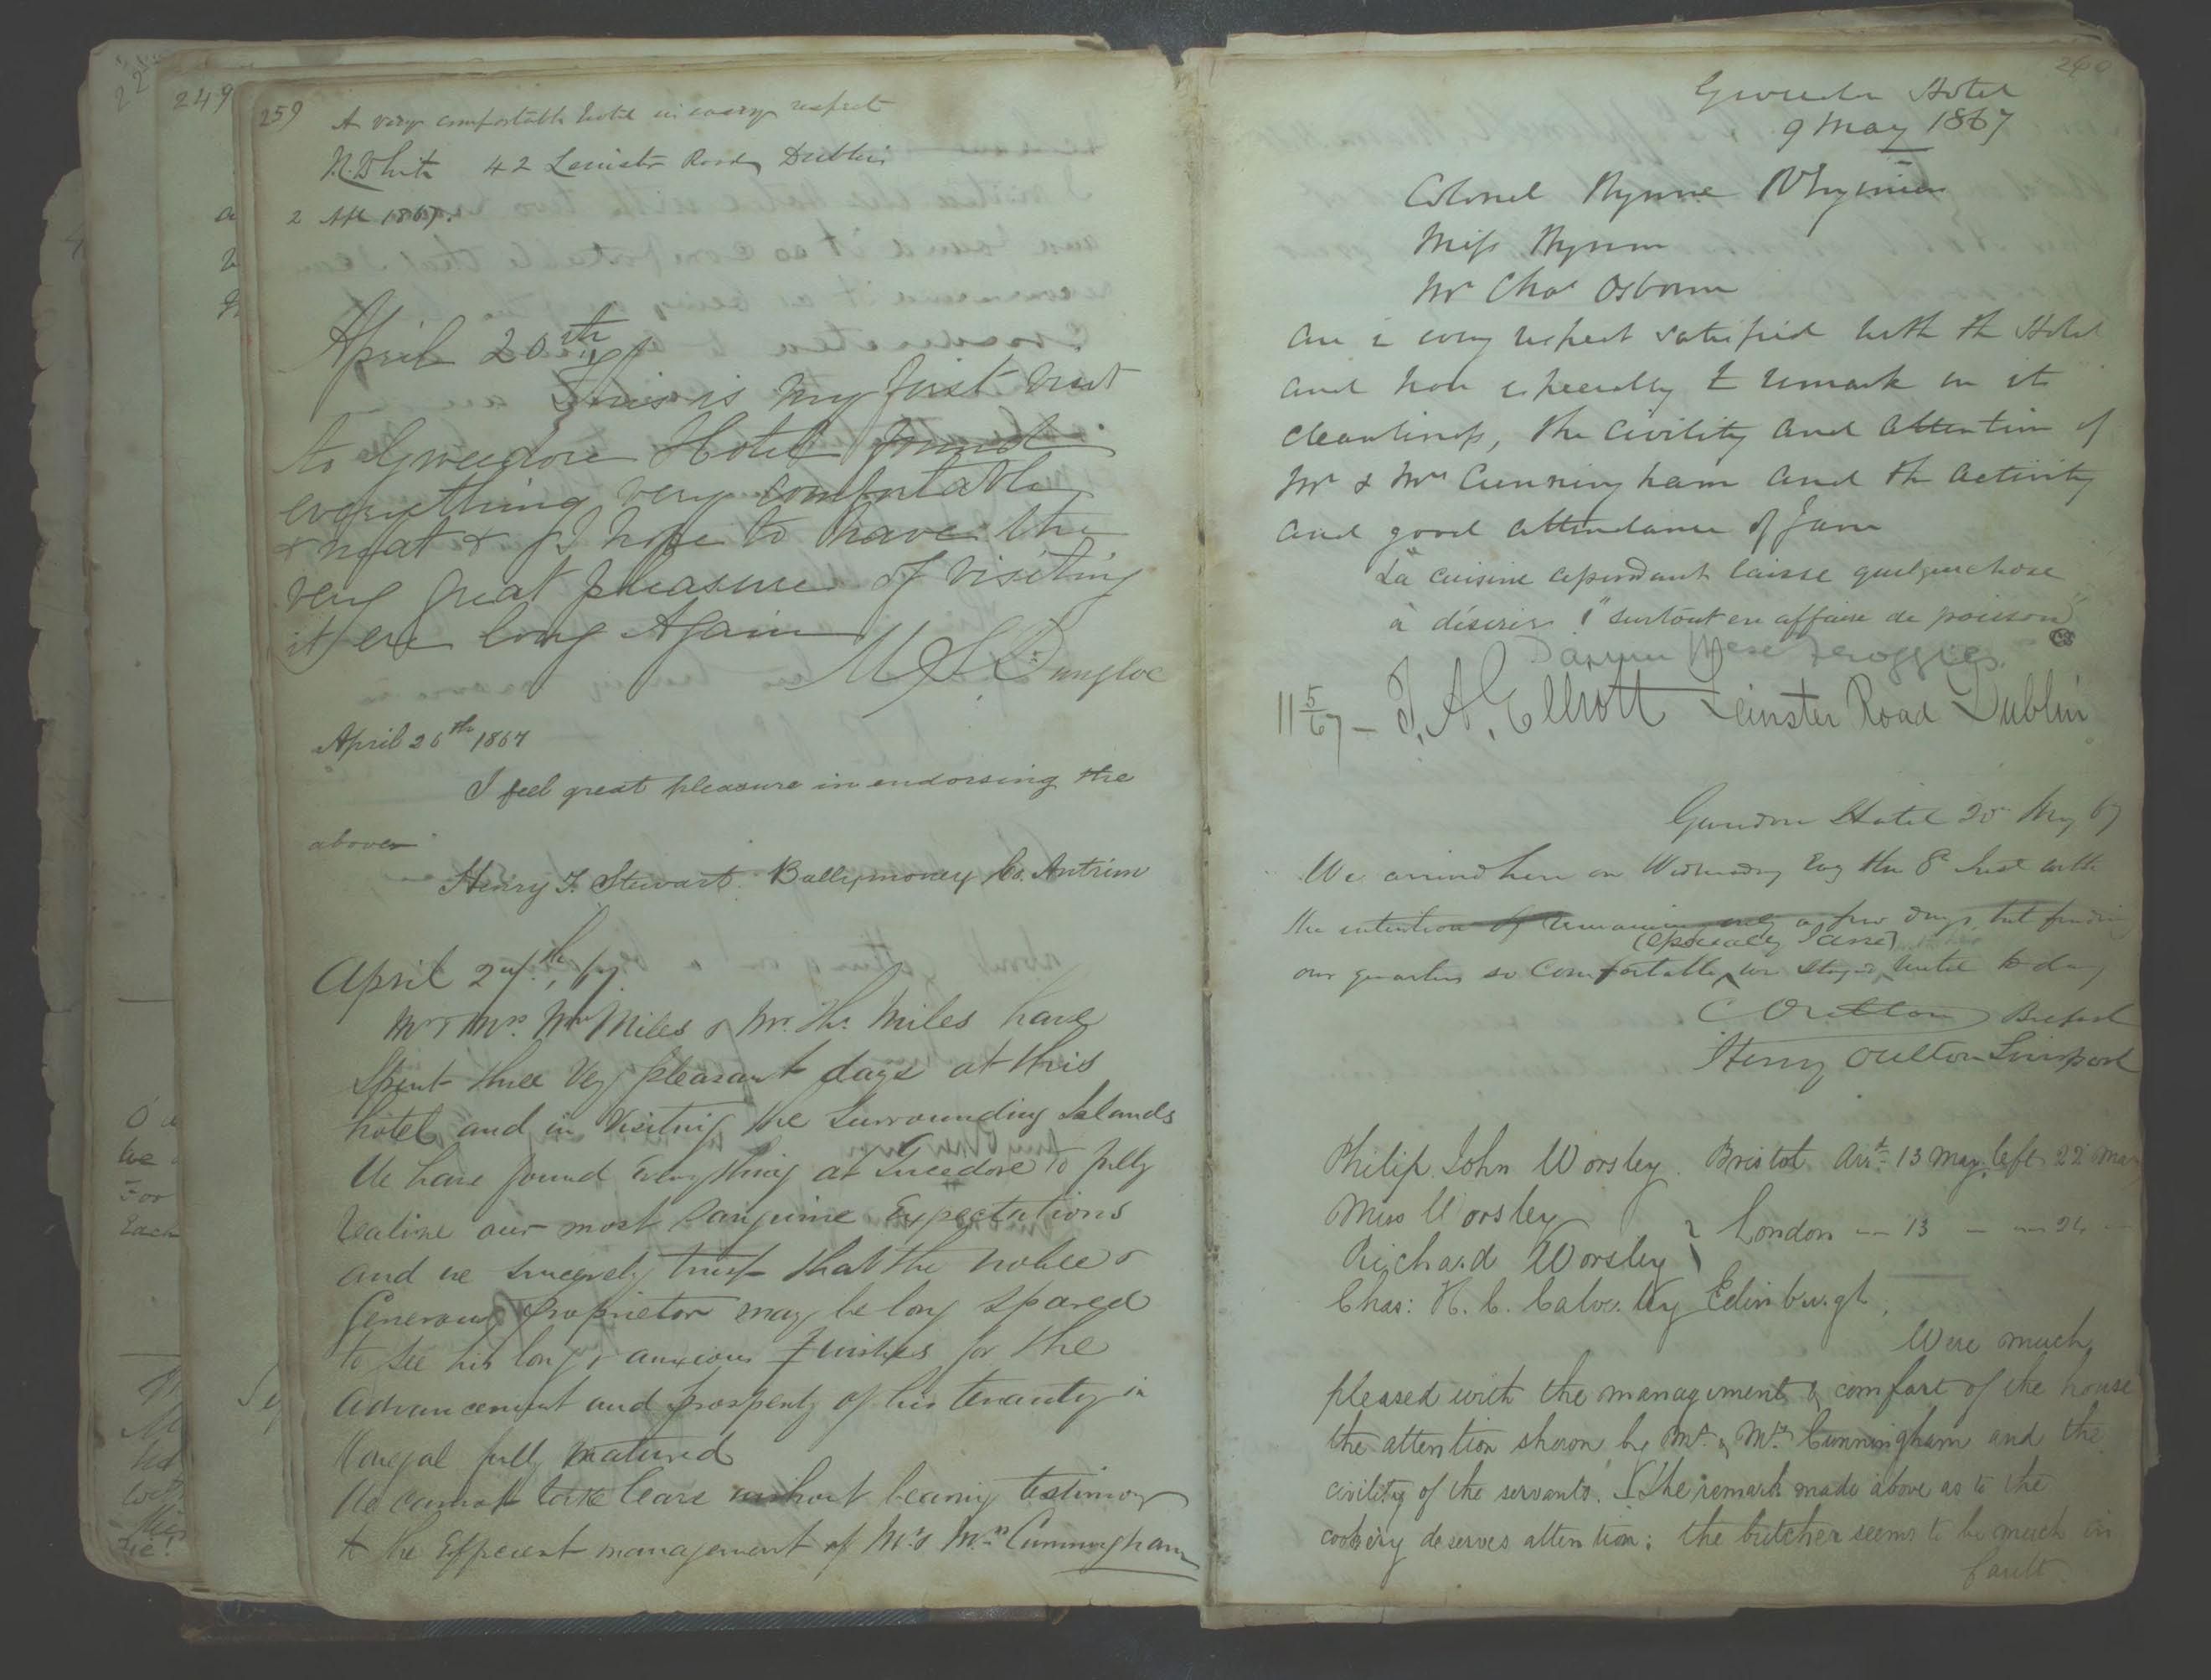 259
A very comfortable hotel in every respect
N. White 42 Leinster Road Dublin
2 Apl 1867.
April 20th
This is my first visit
to Gweedore Hotel found
everything very comfortable
& neat & I hope to have the
very great pleasure of visiting
it ere long Again
Dungloe
April 26th 1867
I feel great pleasure in endorsing the
above
Henry F. Stewart. Ballymoney Co. Antrim
April 27th, 67.
Mr & Mrs Wm Miles & Mr. Ths. Miles have
Spent three Very pleasant days at this
hotel and in Visiting the Surrounding Islands
We have found Everything at Gweedore to fully
realise our most Sanguine Expectations
and we sincerely trust that the noble &
Generous Proprietor may be long Spared
to See his long & anxious wishes for the
advancement and prosperity of his tenantry in
Donegal fully matured
We cannot take leave without bearing testimony
to the Efficient management of Mr & Mrs Cunningham
249
260
Gweedore Hotel
9 May 1867
Colonel Wynne R Engineers
Miss Wynne
Mr Chas Osborn
are in every respect satisfied with the Hotel
and have especially to remark on its
cleanliness, the civility and attention of
Mr & Mrs Cunningham and the activity
and good attendance of Jane
La cuisine cependant laisse quelquechose
à désirer! "surtout en affaire de poisson"
11 5/67 — J. A. Elliott Leinster Road Dublin
Gweedore Hotel 20th May 67
We arrived here on Wednesday Evg the 8th Inst with
the intention of remaining only a few days, but finding
(especially Jane)
our quarters so comfortable we stayed until to day
C Oulton Belfast
Henry Oulton Liverpool
Philip John Worsley. Bristol arrd 13 May. left 22 May
Miss Worsley
Richard Worsley } London — 13 — — 24 —
Chas: H. C. Calverley Edinburgh.
Were much
pleased with the management & comfort of the house
the attention shown by Mr. & Mrs. Cunningham and the
civility of the servants. The remark made above as to the
cookery deserves attention: the butcher seems to be much in
fault